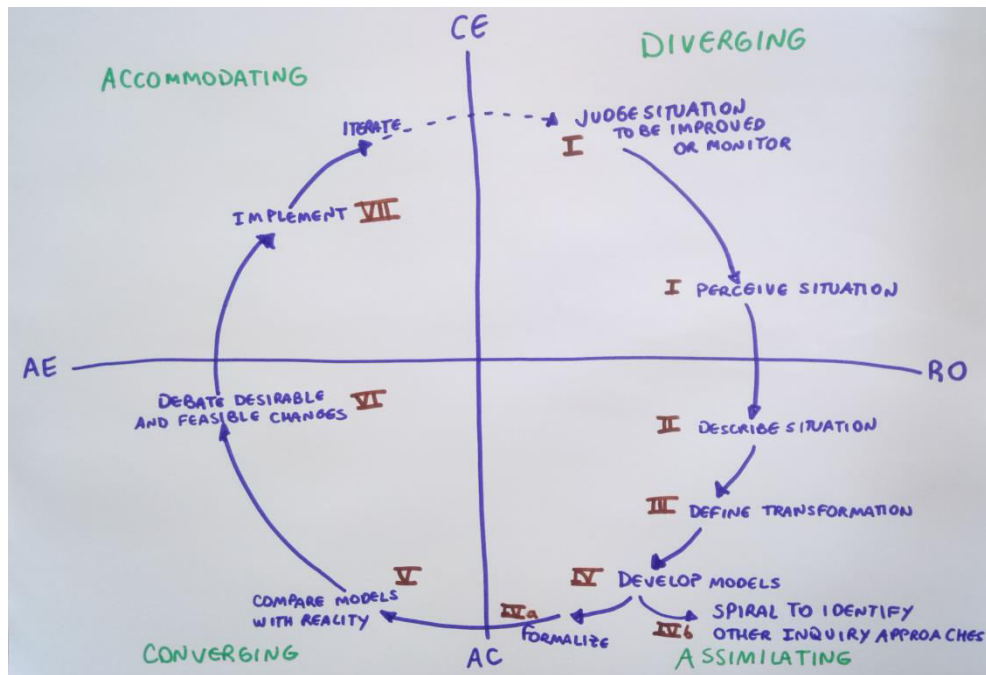 CE
DIVERGING
ACCOMMODATING
ITERATE
JUDGE SITUATION
TO BE IMPROVED
OR MONITOR
I
IMPLEMENT VII
I PERCEIVE SITUATION
AE
RO
DEBATE DESIRABLE
AND FEASIBLE CHANGES VI
II DESCRIBE SITUATION
III DEFINE TRANSFORMATION
IV DEVELOP MODELS
V
COMPARE MODELS
WITH REALITY
IVa
FORMALIZE
SPIRAL TO IDENTIFY
IVb OTHER INQUIRY APPROACHES
CONVERGING
AC
ASSIMILATING